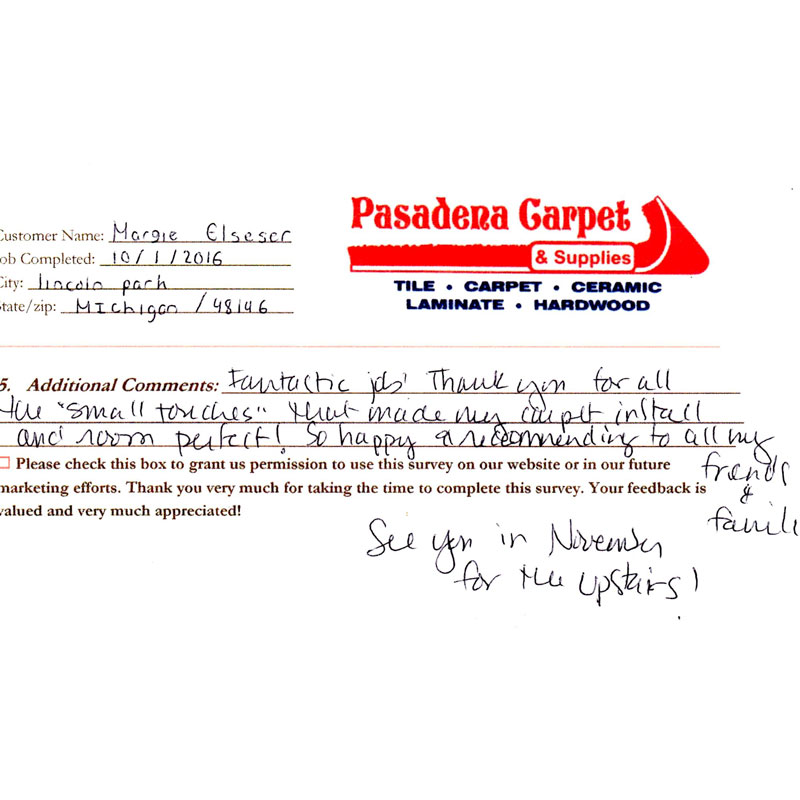 Pasadena Carpet
& Supplies
TILE • CARPET • CERAMIC
LAMINATE • HARDWOOD
Customer Name: Margie Elseser
ob Completed: 10/1/2016
City: lincoln park
tate/zip: Michigan / 48146
5. Additional Comments: Fantastic job! Thank you for all
the "small touches" that made my carpet install
and room perfect! So happy & recommending to all my
friends
&
famili
☐ Please check this box to grant us permission to use this survey on our website or in our future
marketing efforts. Thank you very much for taking the time to complete this survey. Your feedback is
valued and very much appreciated!
See you in November
for the upstairs!